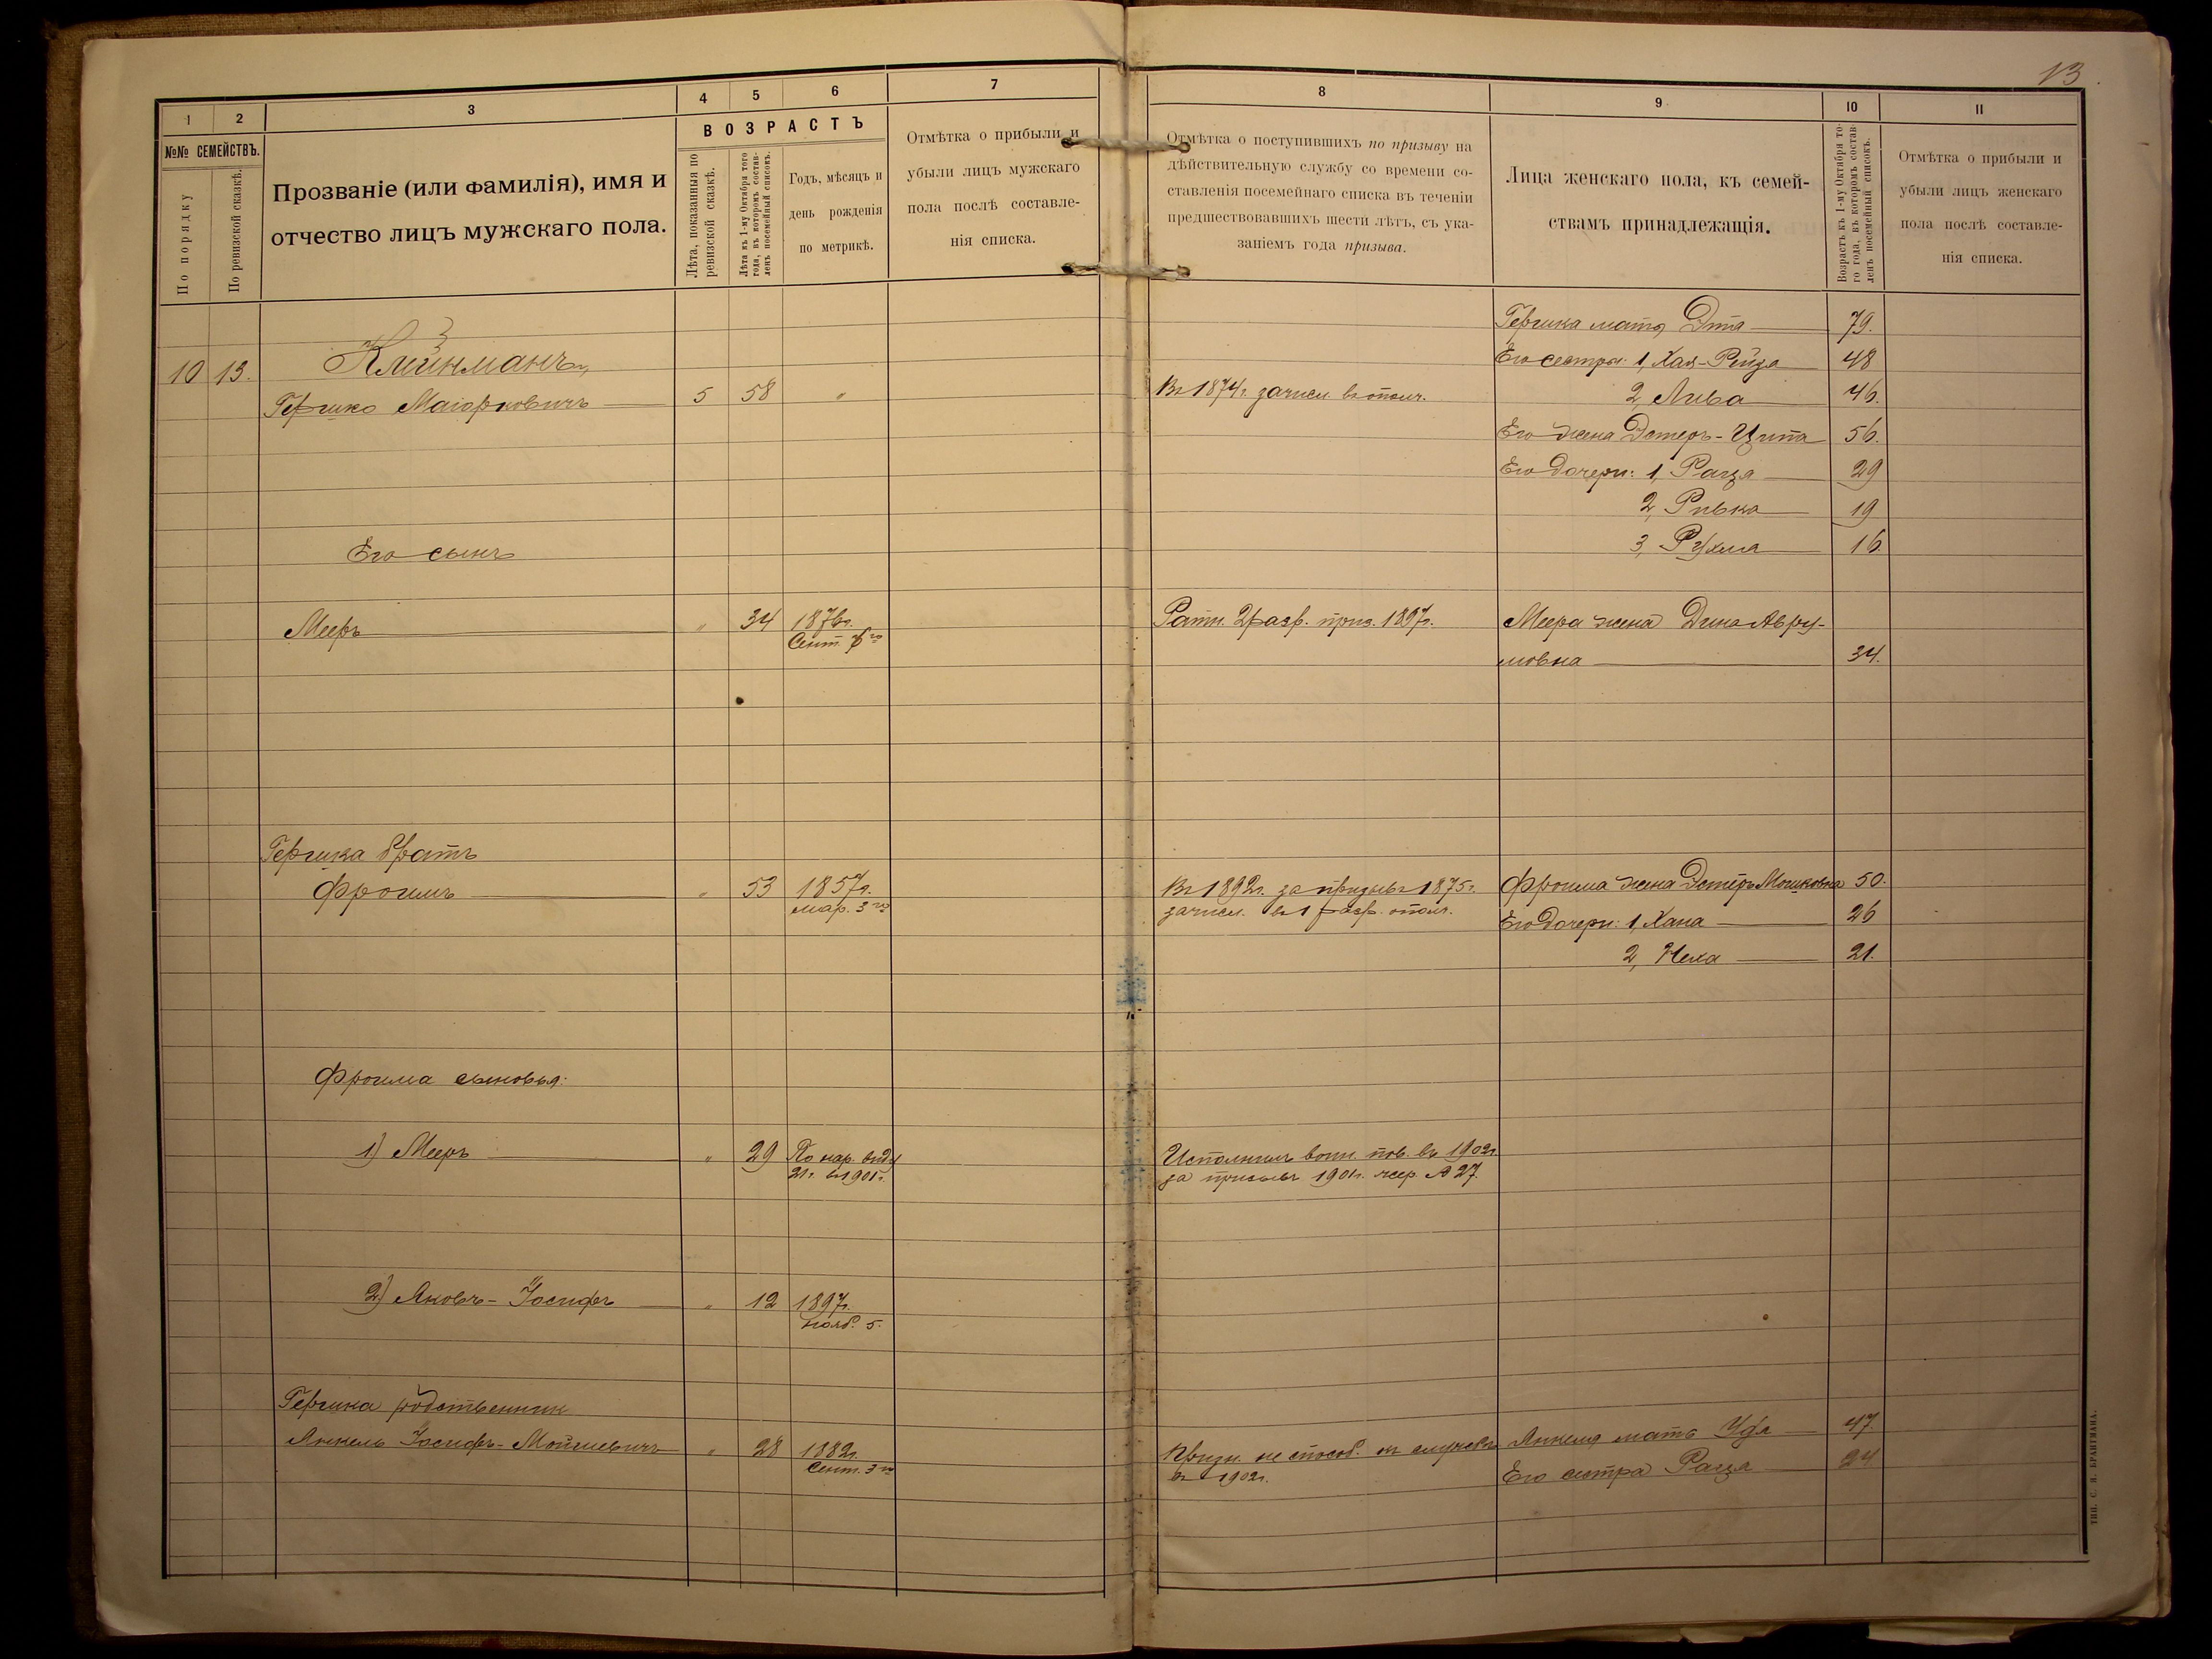 13
1
2
3
4
5
6
7
№№ СЕМЕЙСТВЪ.
По порядку
По ревизской сказкѣ.
Прозваніе (или фамилія), имя и
отчество лицъ мужскаго пола.
ВОЗРАСТЪ
Лѣта, показанныя по
ревизской сказкѣ.
Лѣта къ 1-му Октября того
года, въ которомъ состав-
ленъ посемейный списокъ.
Годъ, мѣсяцъ и
день рожденія
по метрикѣ.
Отмѣтка о прибыли и
убыли лицъ мужскаго
пола послѣ составле-
нія списка.
8
9
10
11
Отмѣтка о поступившихъ по призыву на
дѣйствительную службу со времени со-
ставленія посемейнаго списка въ теченіи
предшествовавшихъ шести лѣтъ, съ ука-
заніемъ года призыва.
Лица женскаго пола, къ семей-
ствамъ принадлежащія.
Возрастъ къ 1-му Октября то-
го года, въ которомъ состав-
ленъ посемейный списокъ.
Отмѣтка о прибыли и
убыли лицъ женскаго
пола послѣ составле-
нія списка.
10 13. Клейнманъ,
Гершко Маіорковичъ 5 58 "
Его сынъ
Мееръ " 34 1876г.
Сент.
Гершка братъ
Фроимъ " 53 1857г.
мар. 3го
Фроима сыновья:
1) Мееръ " 29 По нар. виду
21 г. въ 1901г.
2) Яковъ-Іосифъ " 12 1897г.
нояб. 5.
Гершка родственник
Янкель Іосифъ-Мойшевичъ " 28 1882г.
Сент. 3го
Въ 1874г. зачисл. въ ополч.
Ратн. 2 разр. приз. 1897г.
Въ 1892г. за призывъ 1875г.
зачисл. въ 1 разр. ополч.
Исполнилъ воин. пов. въ 1902г.
за призывъ 1901г. жер. № 27.
Призн. не способ. къ службѣ
въ 1902г.
Гершка мать Эта 79.
Его сестры: 1, Хая-Рейза 48
2, Либа 46.
Его жена Эстеръ-Ципа 56.
Его дочери: 1, Раця 29
2, Ривка 19
3, Рухля 16
Меера жена Дина Авру-
мовна 34.
Фроима жена Эстеръ Мошковна 50.
Его дочери: 1, Хана 26
2, Неха 21.
Янкеля мать Удя 47
Его сестра Раця 24
ТИП. С. И. БРАНГМАНА.